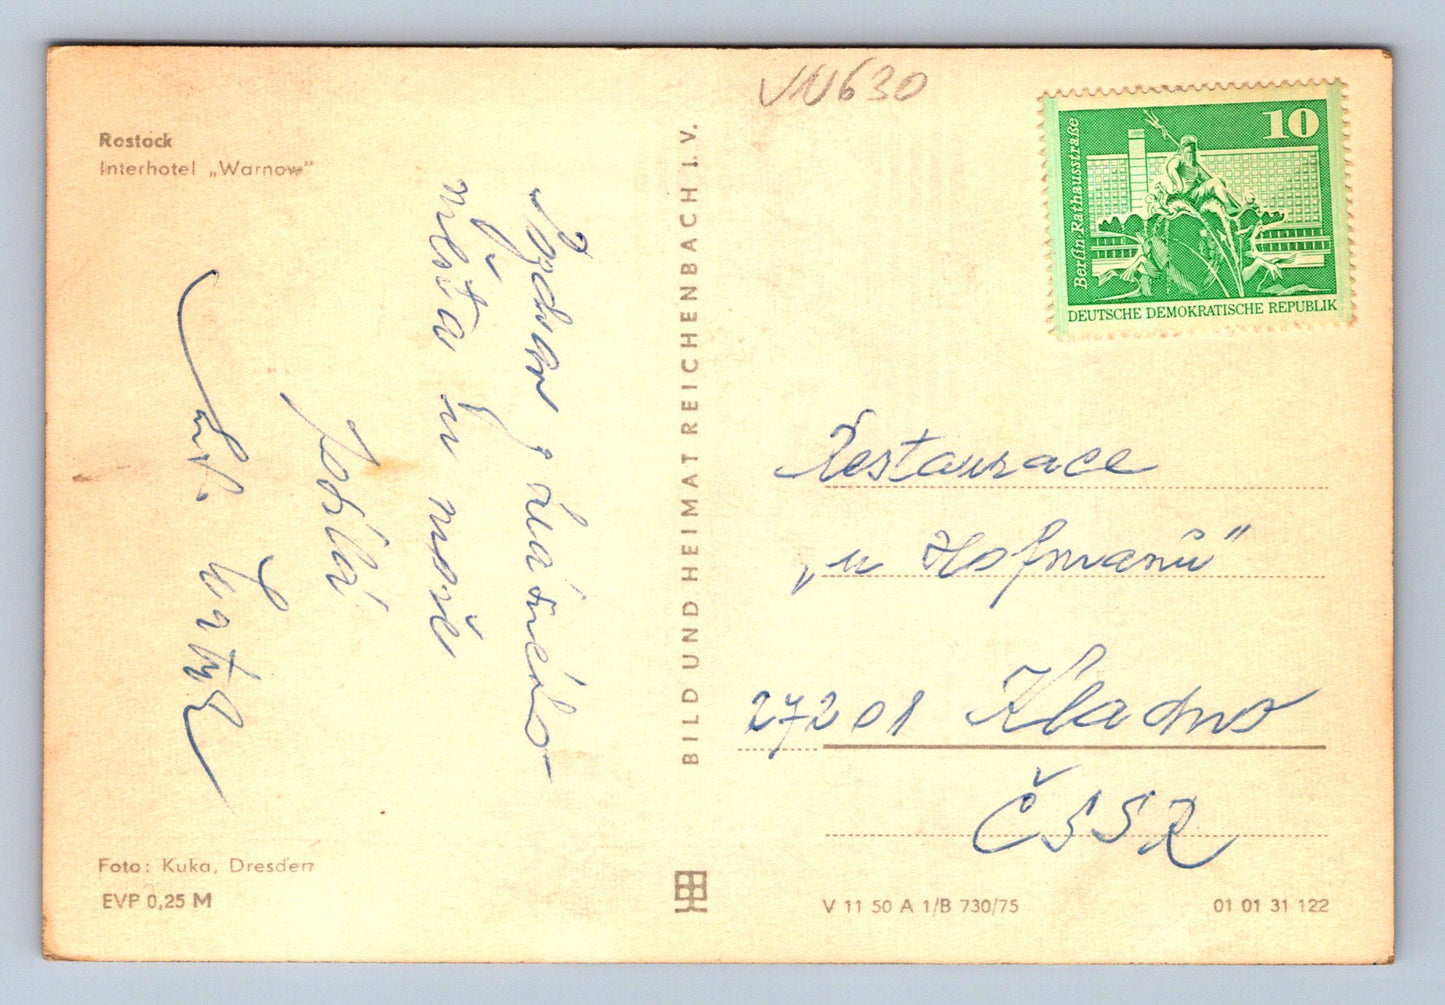 Rostock
Interhotel „Warnow"
VN630
10
Berlin-Rathausstraße
DEUTSCHE DEMOKRATISCHE REPUBLIK
Pozdrav z daleného
města u moře
posílá
BILD UND HEIMAT REICHENBACH I. V.
Restaurace
„u Hofmanů"
27201 Kladno
ČSSR
Foto: Kuka, Dresden
EVP 0,25 M
V 11 50 A 1/B 730/75
01 01 31 122